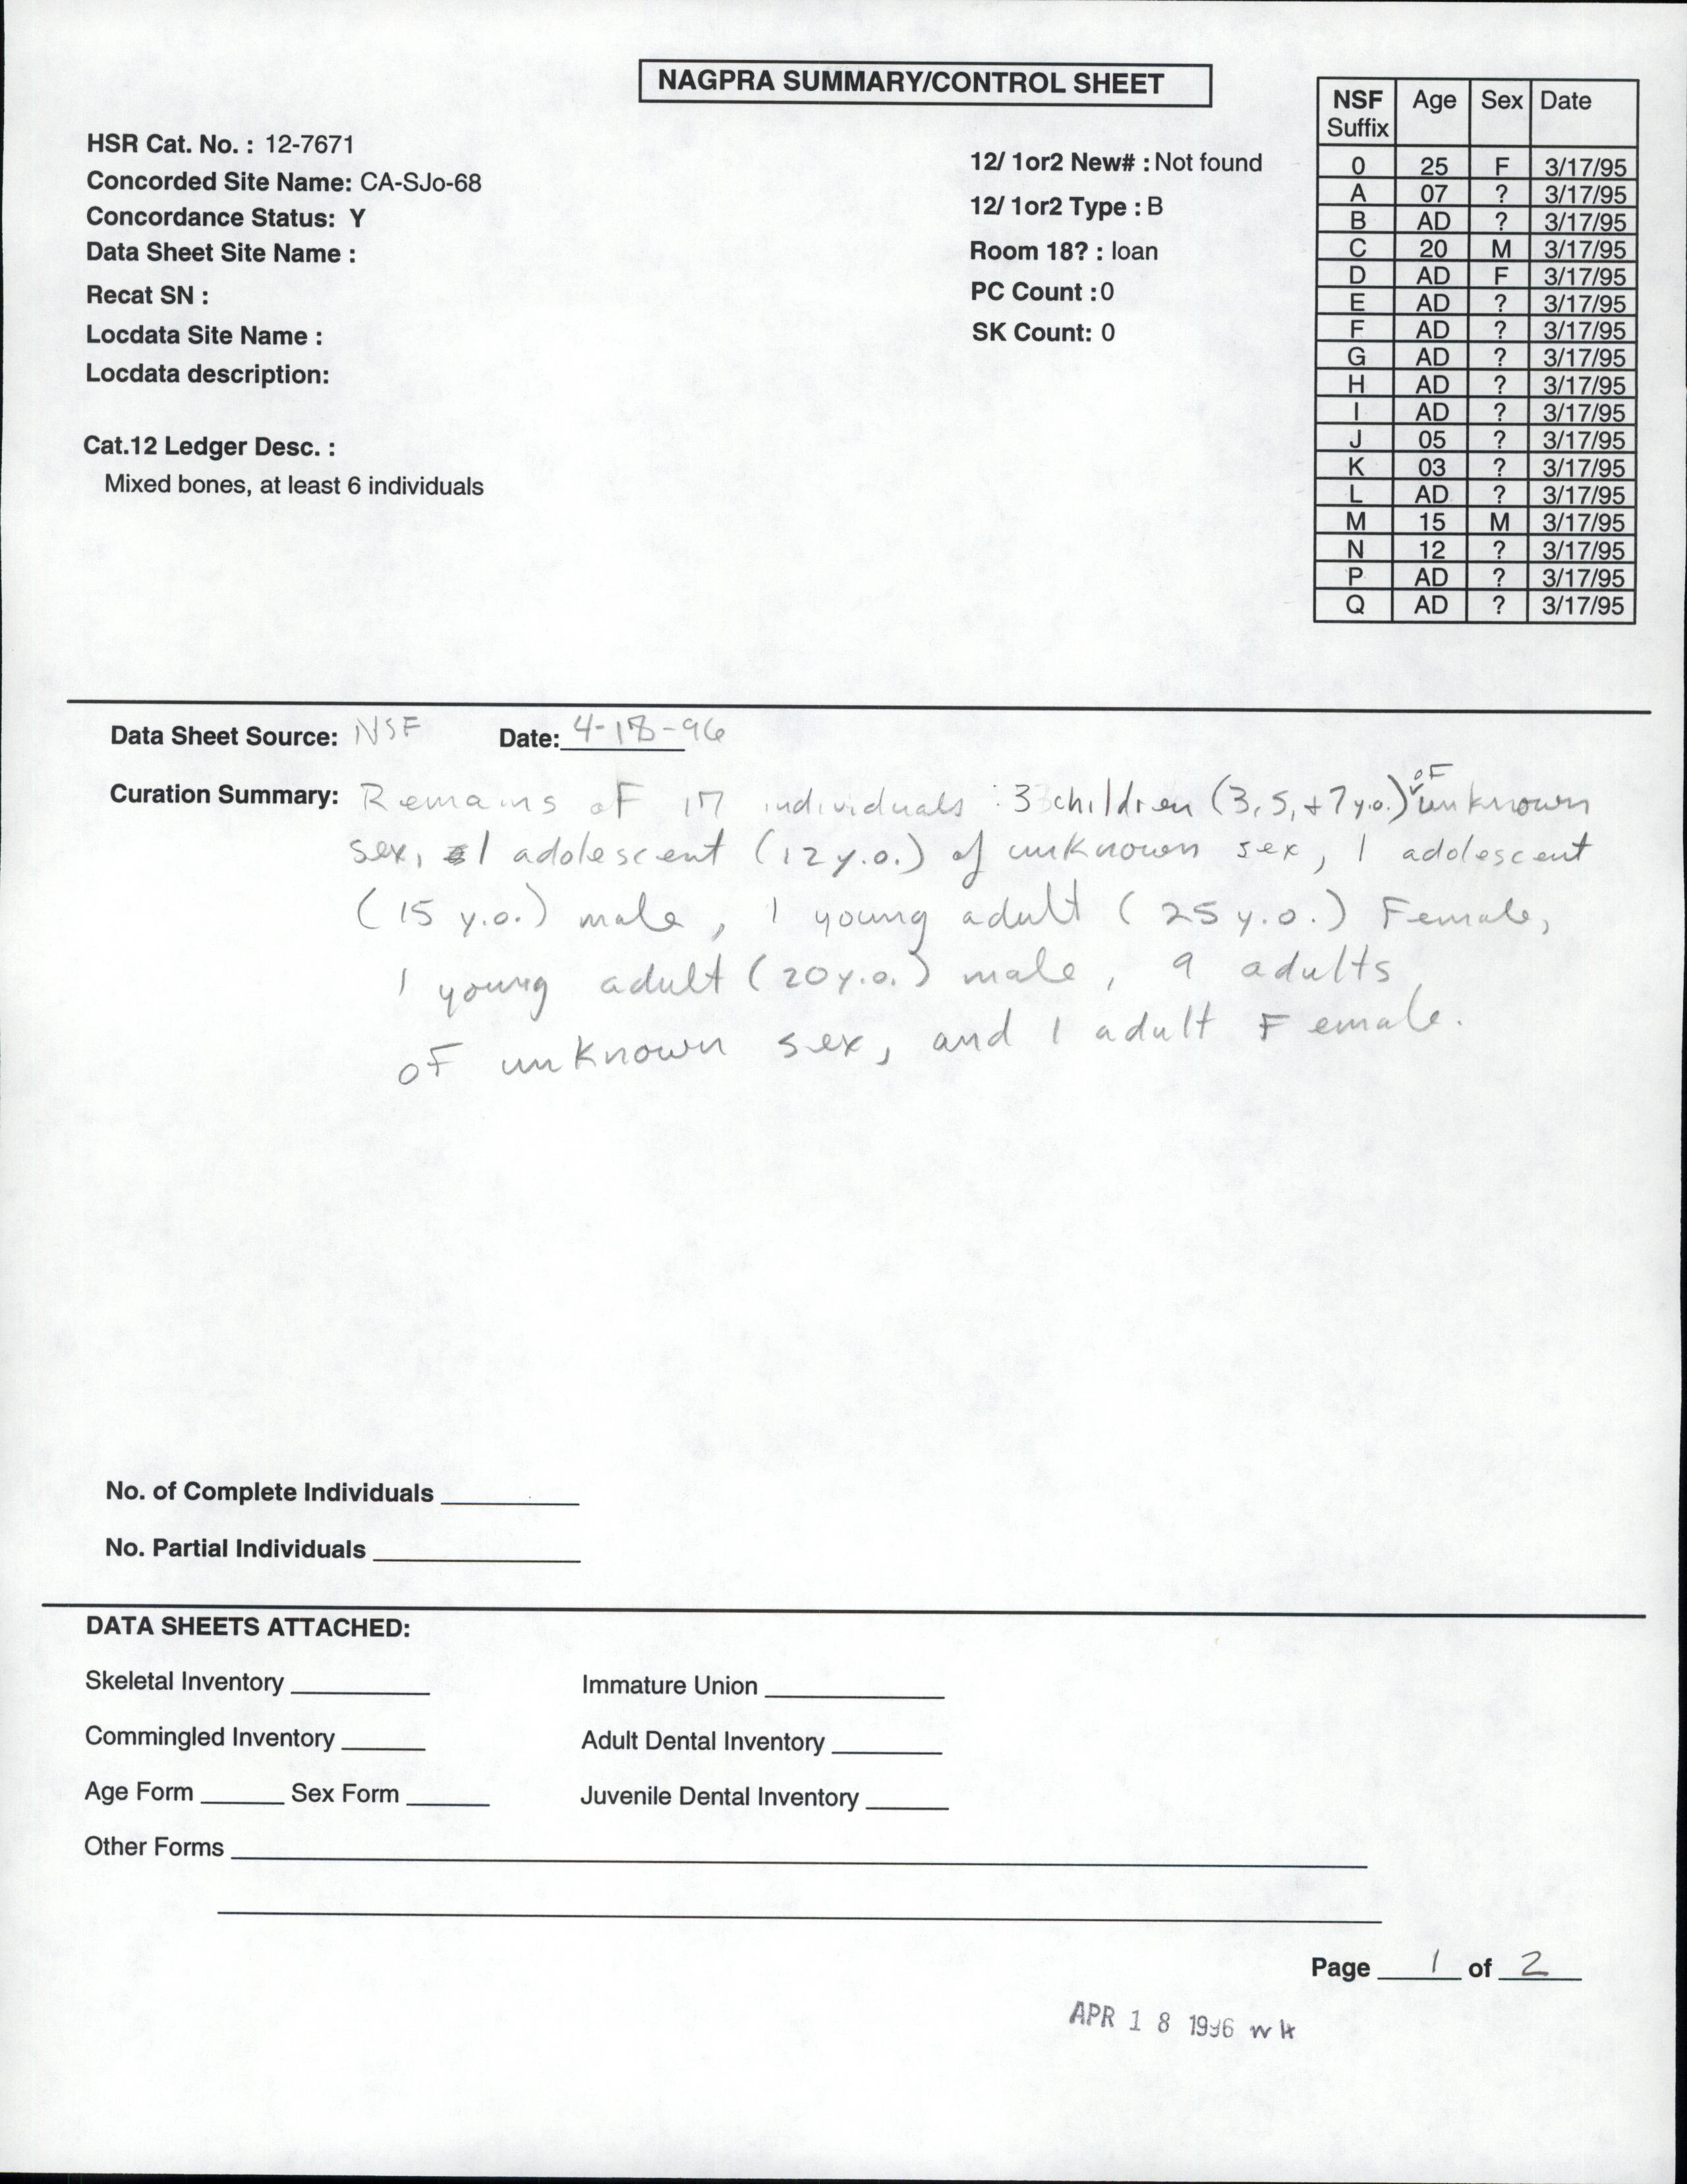 NAGPRA SUMMARY/CONTROL SHEET
HSR Cat. No. : 12-7671
Concorded Site Name: CA-SJo-68
Concordance Status: Y
Data Sheet Site Name :
Recat SN :
Locdata Site Name :
Locdata description:
Cat.12 Ledger Desc. :
Mixed bones, at least 6 individuals
12/ 1or2 New# : Not found
12/ 1or2 Type : B
Room 18? : loan
PC Count : 0
SK Count: 0
NSF Suffix Age Sex Date
0 25 F 3/17/95
A 07 ? 3/17/95
B AD ? 3/17/95
C 20 M 3/17/95
D AD F 3/17/95
E AD ? 3/17/95
F AD ? 3/17/95
G AD ? 3/17/95
H AD ? 3/17/95
I AD ? 3/17/95
J 05 ? 3/17/95
K 03 ? 3/17/95
L AD ? 3/17/95
M 15 M 3/17/95
N 12 ? 3/17/95
P AD ? 3/17/95
Q AD ? 3/17/95
Data Sheet Source: NSF Date: 4-18-96
Curation Summary: Remains of 17 individuals : 3 children (3, 5, + 7 y.o.) of unknown
sex, 1 adolescent (12 y.o.) of unknown sex, 1 adolescent
(15 y.o.) male, 1 young adult (25 y.o.) Female,
1 young adult (20 y.o.) male, 9 adults
of unknown sex, and 1 adult Female.
No. of Complete Individuals
No. Partial Individuals
DATA SHEETS ATTACHED:
Skeletal Inventory Immature Union
Commingled Inventory Adult Dental Inventory
Age Form Sex Form Juvenile Dental Inventory
Other Forms
Page 1 of 2
APR 18 1996 WH